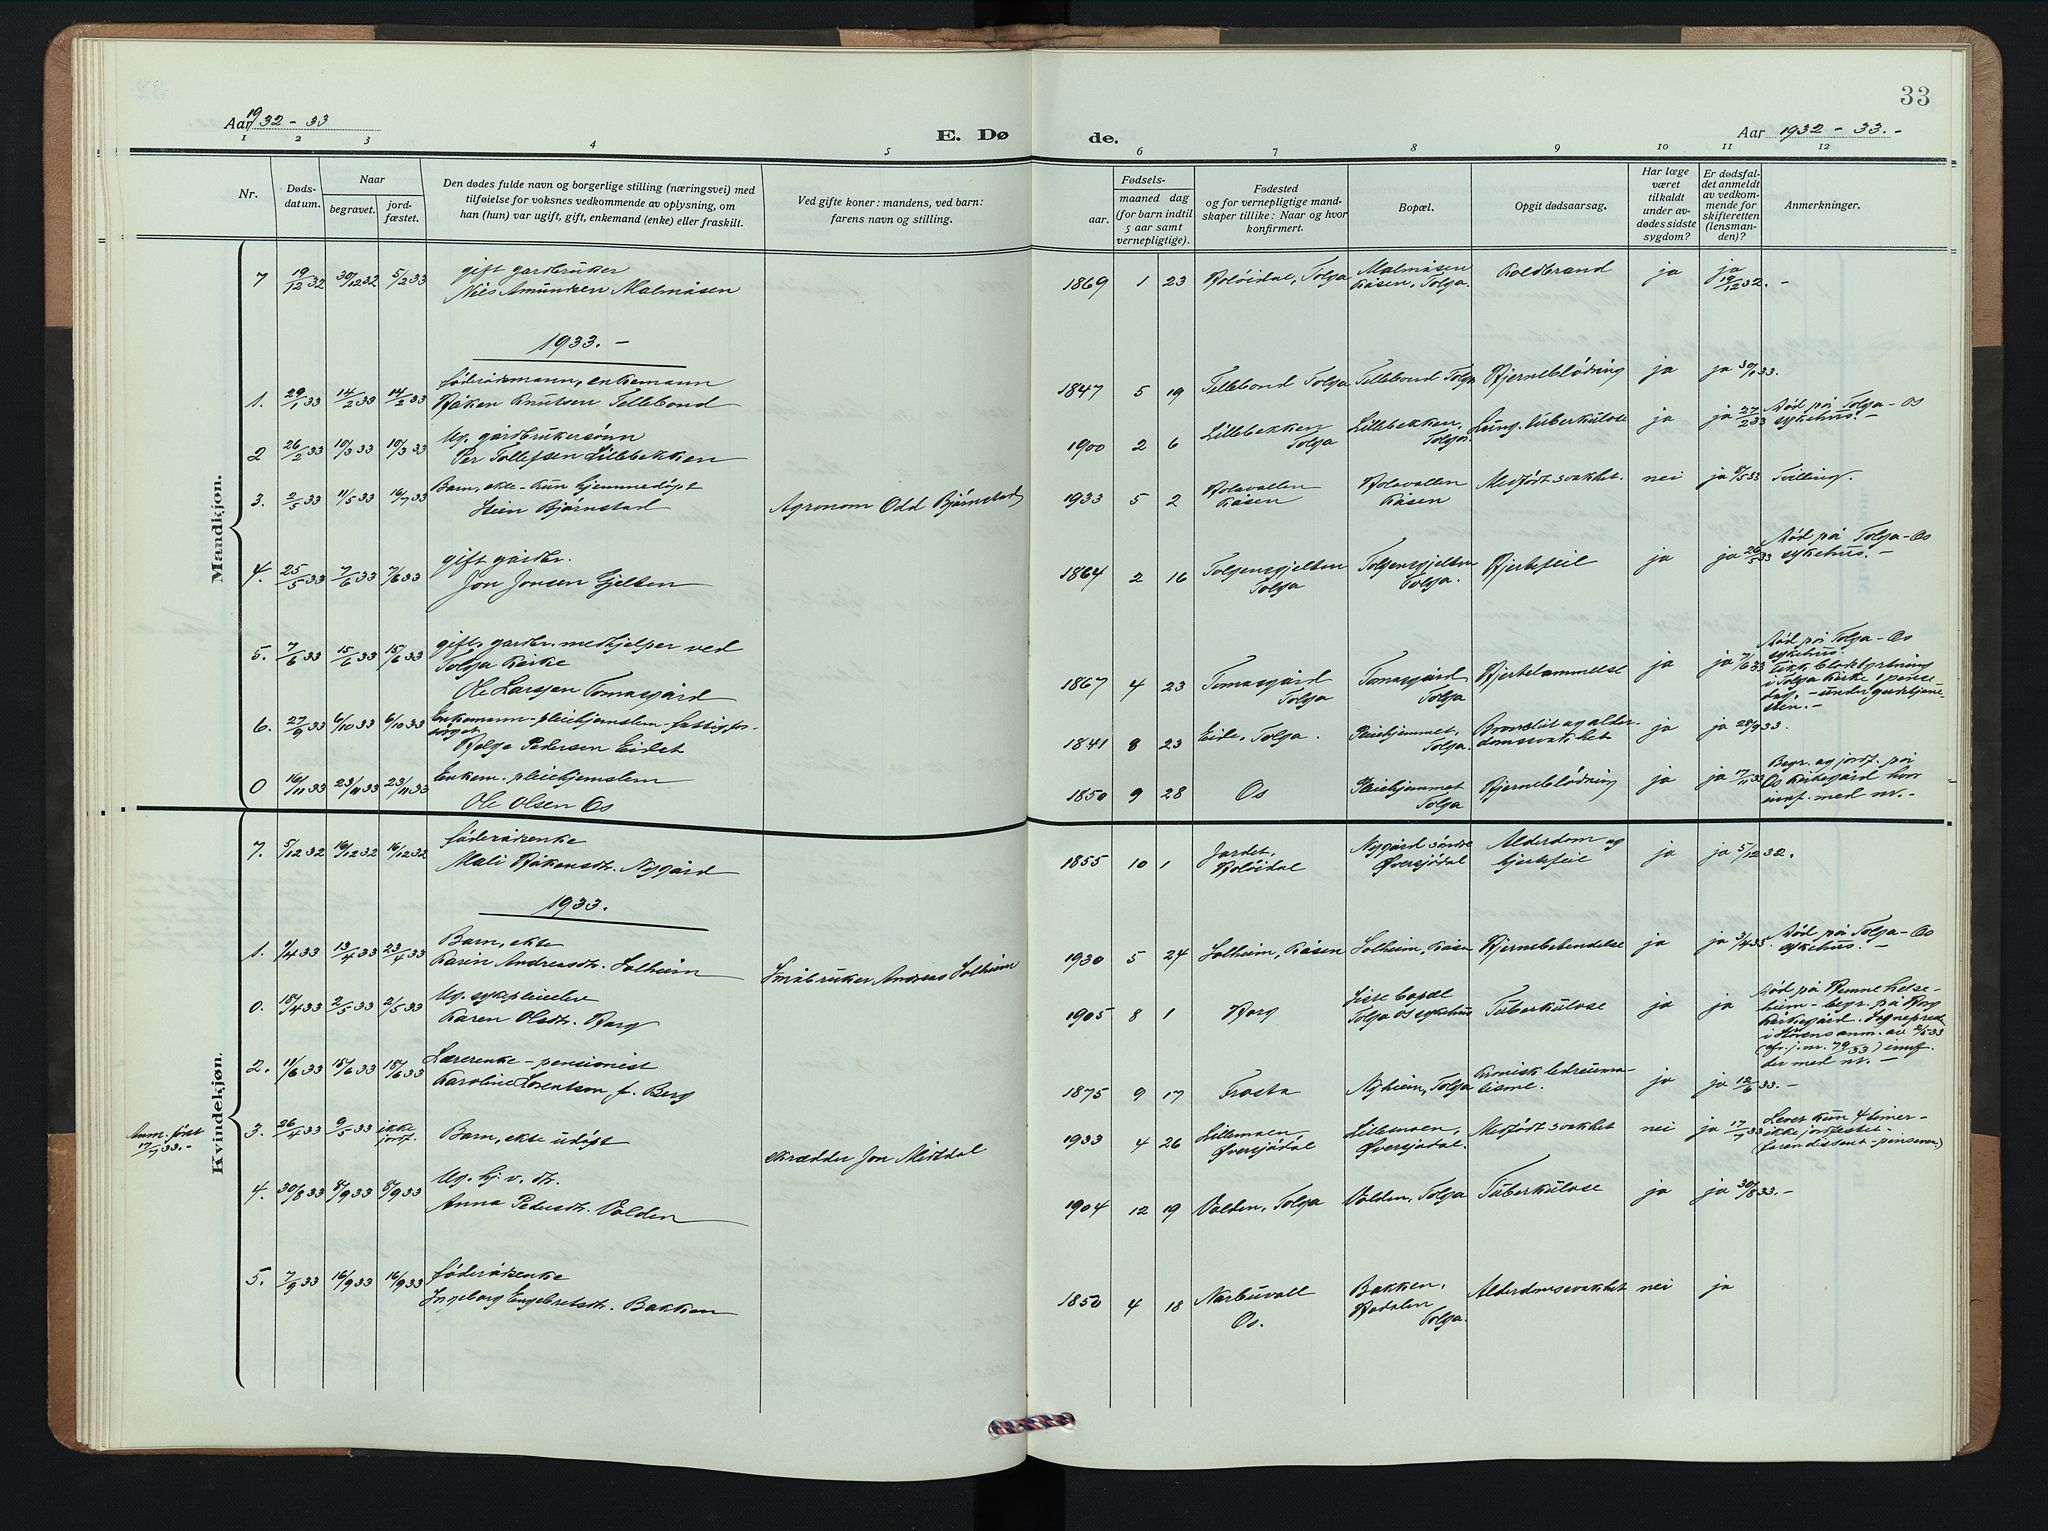 33
Aar 1932 - 33
E. Dø
de.
Aar 1932 - 33. -
1 2 3 4 5 6 7 8 9 10 11 12
Nr.
Døds-
datum.
Naar
begravet.
jord-
fæstet.
Den dødes fulde navn og borgerlige stilling (næringsvei) med
tilføielse for voksnes vedkommende av oplysning, om
han (hun) var ugift, gift, enkemand (enke) eller fraskilt.
Ved gifte koner: mandens, ved barn:
farens navn og stilling.
Fødsels-
aar.
maaned dag
(for barn indtil
5 aar samt
vernepligtige).
Fødested
og for vernepligtige mand-
skaper tillike: Naar og hvor
konfirmert.
Bopæl.
Opgit dødsaarsag.
Har læge
været
tilkaldt
under av-
dødes sidste
sygdom?
Er dødsfal-
det anmeldt
av vedkom-
mende for
skifteretten
(lensman-
den)?
Anmerkninger.
Mandkjøn.
7 19/12 32 30/12 32 5/2 33 gift gardbruker
Nils Amundsen Malmåsen
1869 1 23 Holøidal, Tolga Malmåsen
Kåsen, Tolga. Koldbrand ja ja
19/12 32. -
1933. -
1. 29/1 33 14/2 33 14/2 33 føderådsmann, enkemann
Håken Knutsen Tellebond
1847 5 19 Tellebond Tolga Tellebond Tolga Hjerneblødning ja ja 30/1 33.
2 26/2 33 10/3 33 10/3 33 Ug. gårdbrukersønn
Per Tollefsen Lillebekken
1900 2 6 Lillebekken
Tolga Lillebekken,
Tolga. Lung. tuberkulose ja ja 27/2 33 Død på Tolga-Os
sykehus. -
3. 2/5 33 11/5 33 16/7 33 Barn, ekte - kun hjemmedøpt
Stein Bjørnstad
Agronom Odd Bjørnstad
1933 5 2 Holavollen
Kåsen Holavollen
Kåsen Medfødt svakhet. nei ja 8/5 33 Tvilling.
4. 25/5 33 7/6 33 7/6 33 gift gårdbr.
Jon Jonsen Gjelten
1864 2 16 Tolgensgjelten
Tolga Tolgensgjelten
Tolga. Hjertefeil ja ja 26/5 33 Død på Tolga-Os
sykehus. -
5. 7/6 33 15/6 33 15/6 33 gift, gardbr. medhjelper ved
Tolga Kirke
Ole Larssen Tomasgård
1867 4 23 Tomasgård
Tolga Tomasgård
Tolga Hjertelammelse ja ja 7/6 33 Død på Tolga-Os
sykehus.
Fikk blodstyrtning
i Tolga Kirke 1 pinse
dag, - under gudstjene-
sten. -
6. 27/9 33 6/10 33 6/10 33 Enkemann - pleiehjemslem - fattigfor-
sørget
Helge Pedersen Eidet
1841 8 23 Eide, Tolga. Pleiehjemmet,
Tolga. Bronkitt og alder-
domssvakhet ja ja 28/9 33.
0 16/11 33 23/11 33 23/11 33 Enkem. pleiehjemslem
Ole Olsen Os
1850 9 28 Os Pleiehjemmet
Tolga Hjerneblødning ja ja 17/11 33 Begr. og jordf. på
Os Kirkegård hvor
innf. med nr. -
Kvindekjøn.
7. 5/12 32 16/12 32 16/12 32 føderådsenke
Mali Håkensdtr. Nygård
1855 10 1 Jordet,
Holøidal Nygård søndre
Øversjødal Alderdom og
hjertefeil ja ja 5/12 32.
1933.
1. 9/4 33 13/4 33 23/4 33 Barn, ekte
Karin Andreasdtr. Solheim
Småbruker Andreas Solheim
1930 5 24 Solheim, Kåsen Solheim, Kåsen Hjernebetendelse ja ja 3/4 35. Død på Tolga-Os
sykehus. -
0. 18/4 33 2/5 33 2/5 33 Ug. sykepleielev
Karen Olsdtr. Horg
1905 8 1 Horg
Tolga Os sykehus Tuberkulose ja ja Død på Hjemne helse-
heim - begr. på Horg
Kirkegård. Sogneprest
i Størens anm. av 2/5 33
(cfr. j. nr. 79/33) innf.
der med nr. -
2. 11/6 33 18/6 33 18/6 33 Lærerenke - pensionist
Karoline Lorentsen, f. Berg
1875 9 17 Frosta Nyheim, Tolga Kronisk ledreuma-
tisme. ja ja 12/6 33. -
Anm. først
17/7 33. -
3. 26/4 33 9/5 33 ikke
jordf. Barn, ekte udøpt
Skrædder Jon Midtdal
1933 4 26 Lillemoen,
Øversjødal Lillemoen,
Øversjødal. Medfødt svakhet nei ja 17/7 33 Levet kun 4 timer -
ikke jordfestet -
faren dissent - pinseven.)
4. 30/8 33 8/9 33 8/9 33 Ug. hj. v. dtr.
Anna Pedersdtr. Volden
1904 12 19 Volden, Tolga Volden, Tolga Tuberkulose ja ja 30/8 33. -
5. 7/9 33 16/9 33 16/9 33 føderådsenke
Ingeborg Engebretsdtr. Bakken
1850 4 18 Narbuvoll
Os. Bakken,
Hodalen
Tolga. Alderdomssvakhet nei ja